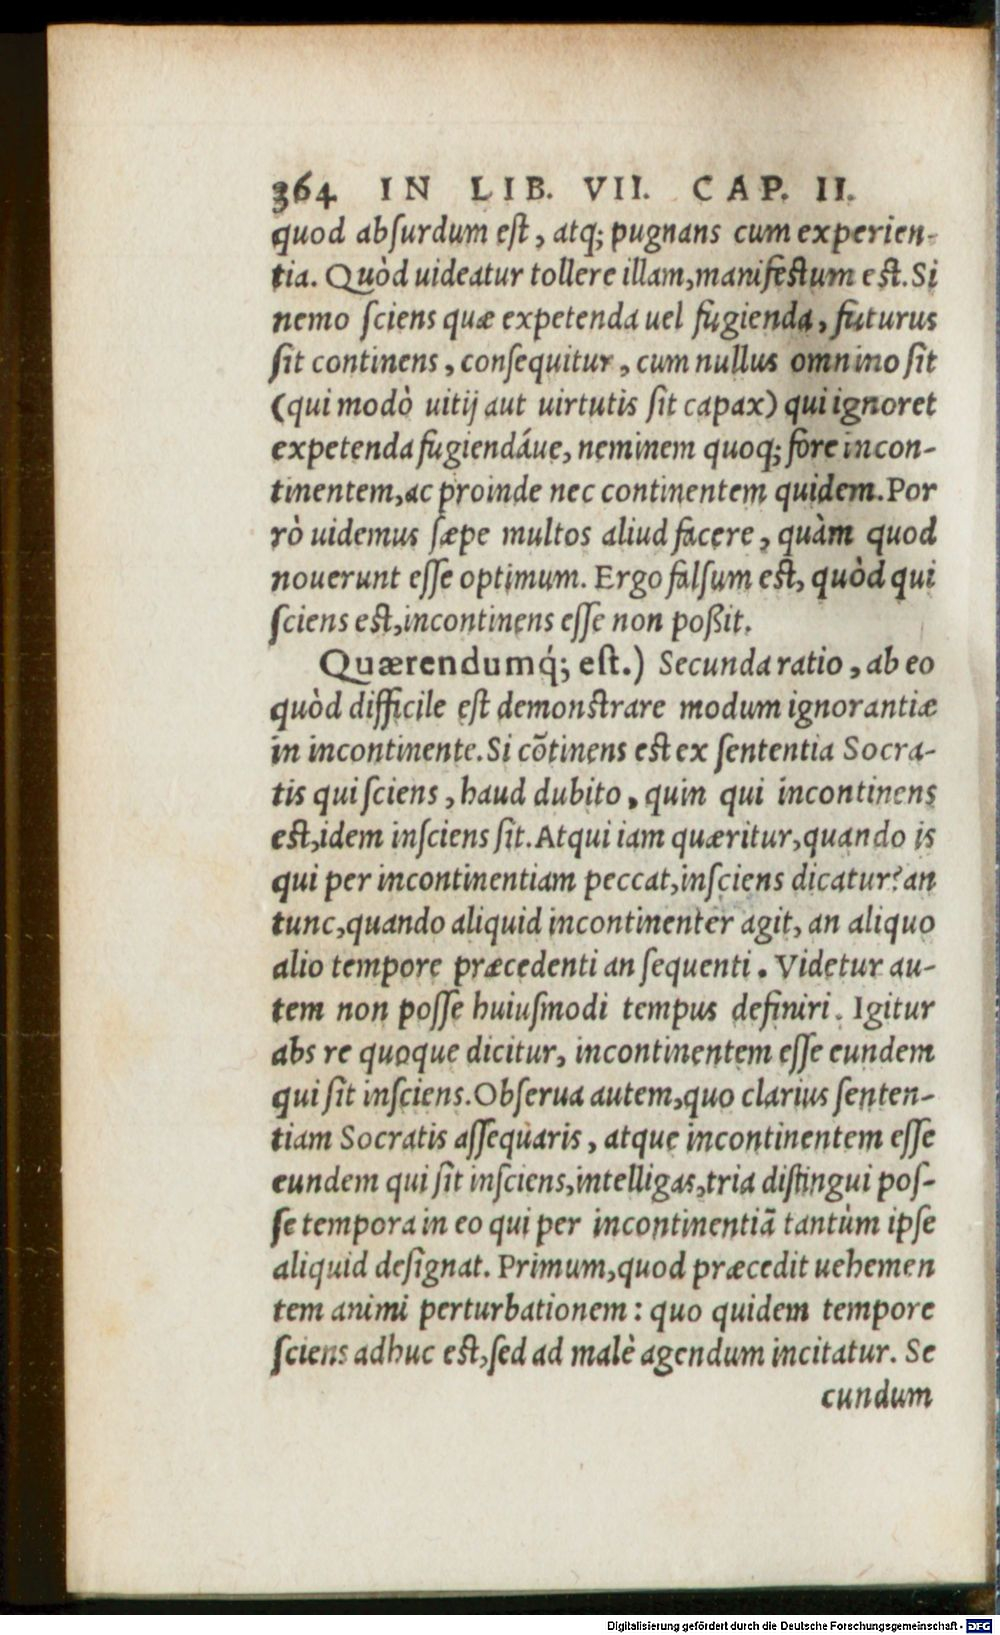 364 IN LIB. VII. CAP. II.
quod absurdum est, atq; pugnans cum experien-
tia. Quòd uideatur tollere illam, manifestum est. Si
nemo sciens quæ expetenda uel fugienda, futurus
sit continens, consequitur, cum nullus omnino sit
(qui modò uitij aut uirtutis sit capax) qui ignoret
expetenda fugiendáue, neminem quoq; fore incon-
tinentem, ac proinde nec continentem quidem. Por
rò uidemus sæpe multos aliud facere, quàm quod
nouerunt esse optimum. Ergo falsum est, quòd qui
sciens est, incontinens esse non poßit.
Quærendumq́; est.) Secunda ratio, ab eo
quòd difficile est demonstrare modum ignorantiæ
in incontinente. Si cõtinens est ex sententia Socra-
tis qui sciens, haud dubito, quin qui incontinens
est, idem insciens sit. Atqui iam quæritur, quando is
qui per incontinentiam peccat, insciens dicatur? an
tunc, quando aliquid incontinenter agit, an aliquo
alio tempore præcedenti an sequenti. Videtur au-
tem non posse huiusmodi tempus definiri. Igitur
abs re quoque dicitur, incontinentem esse eundem
qui sit insciens. Obserua autem, quo clarius senten-
tiam Socratis assequaris, atque incontinentem esse
eundem qui sit insciens, intelligas, tria distingui pos-
se tempora in eo qui per incontinentiã tantùm ipse
aliquid designat. Primum, quod præcedit uehemen
tem animi perturbationem: quo quidem tempore
sciens adhuc est, sed ad malè agendum incitatur. Se
cundum
Digitalisierung gefördert durch die Deutsche Forschungsgemeinschaft - DFG